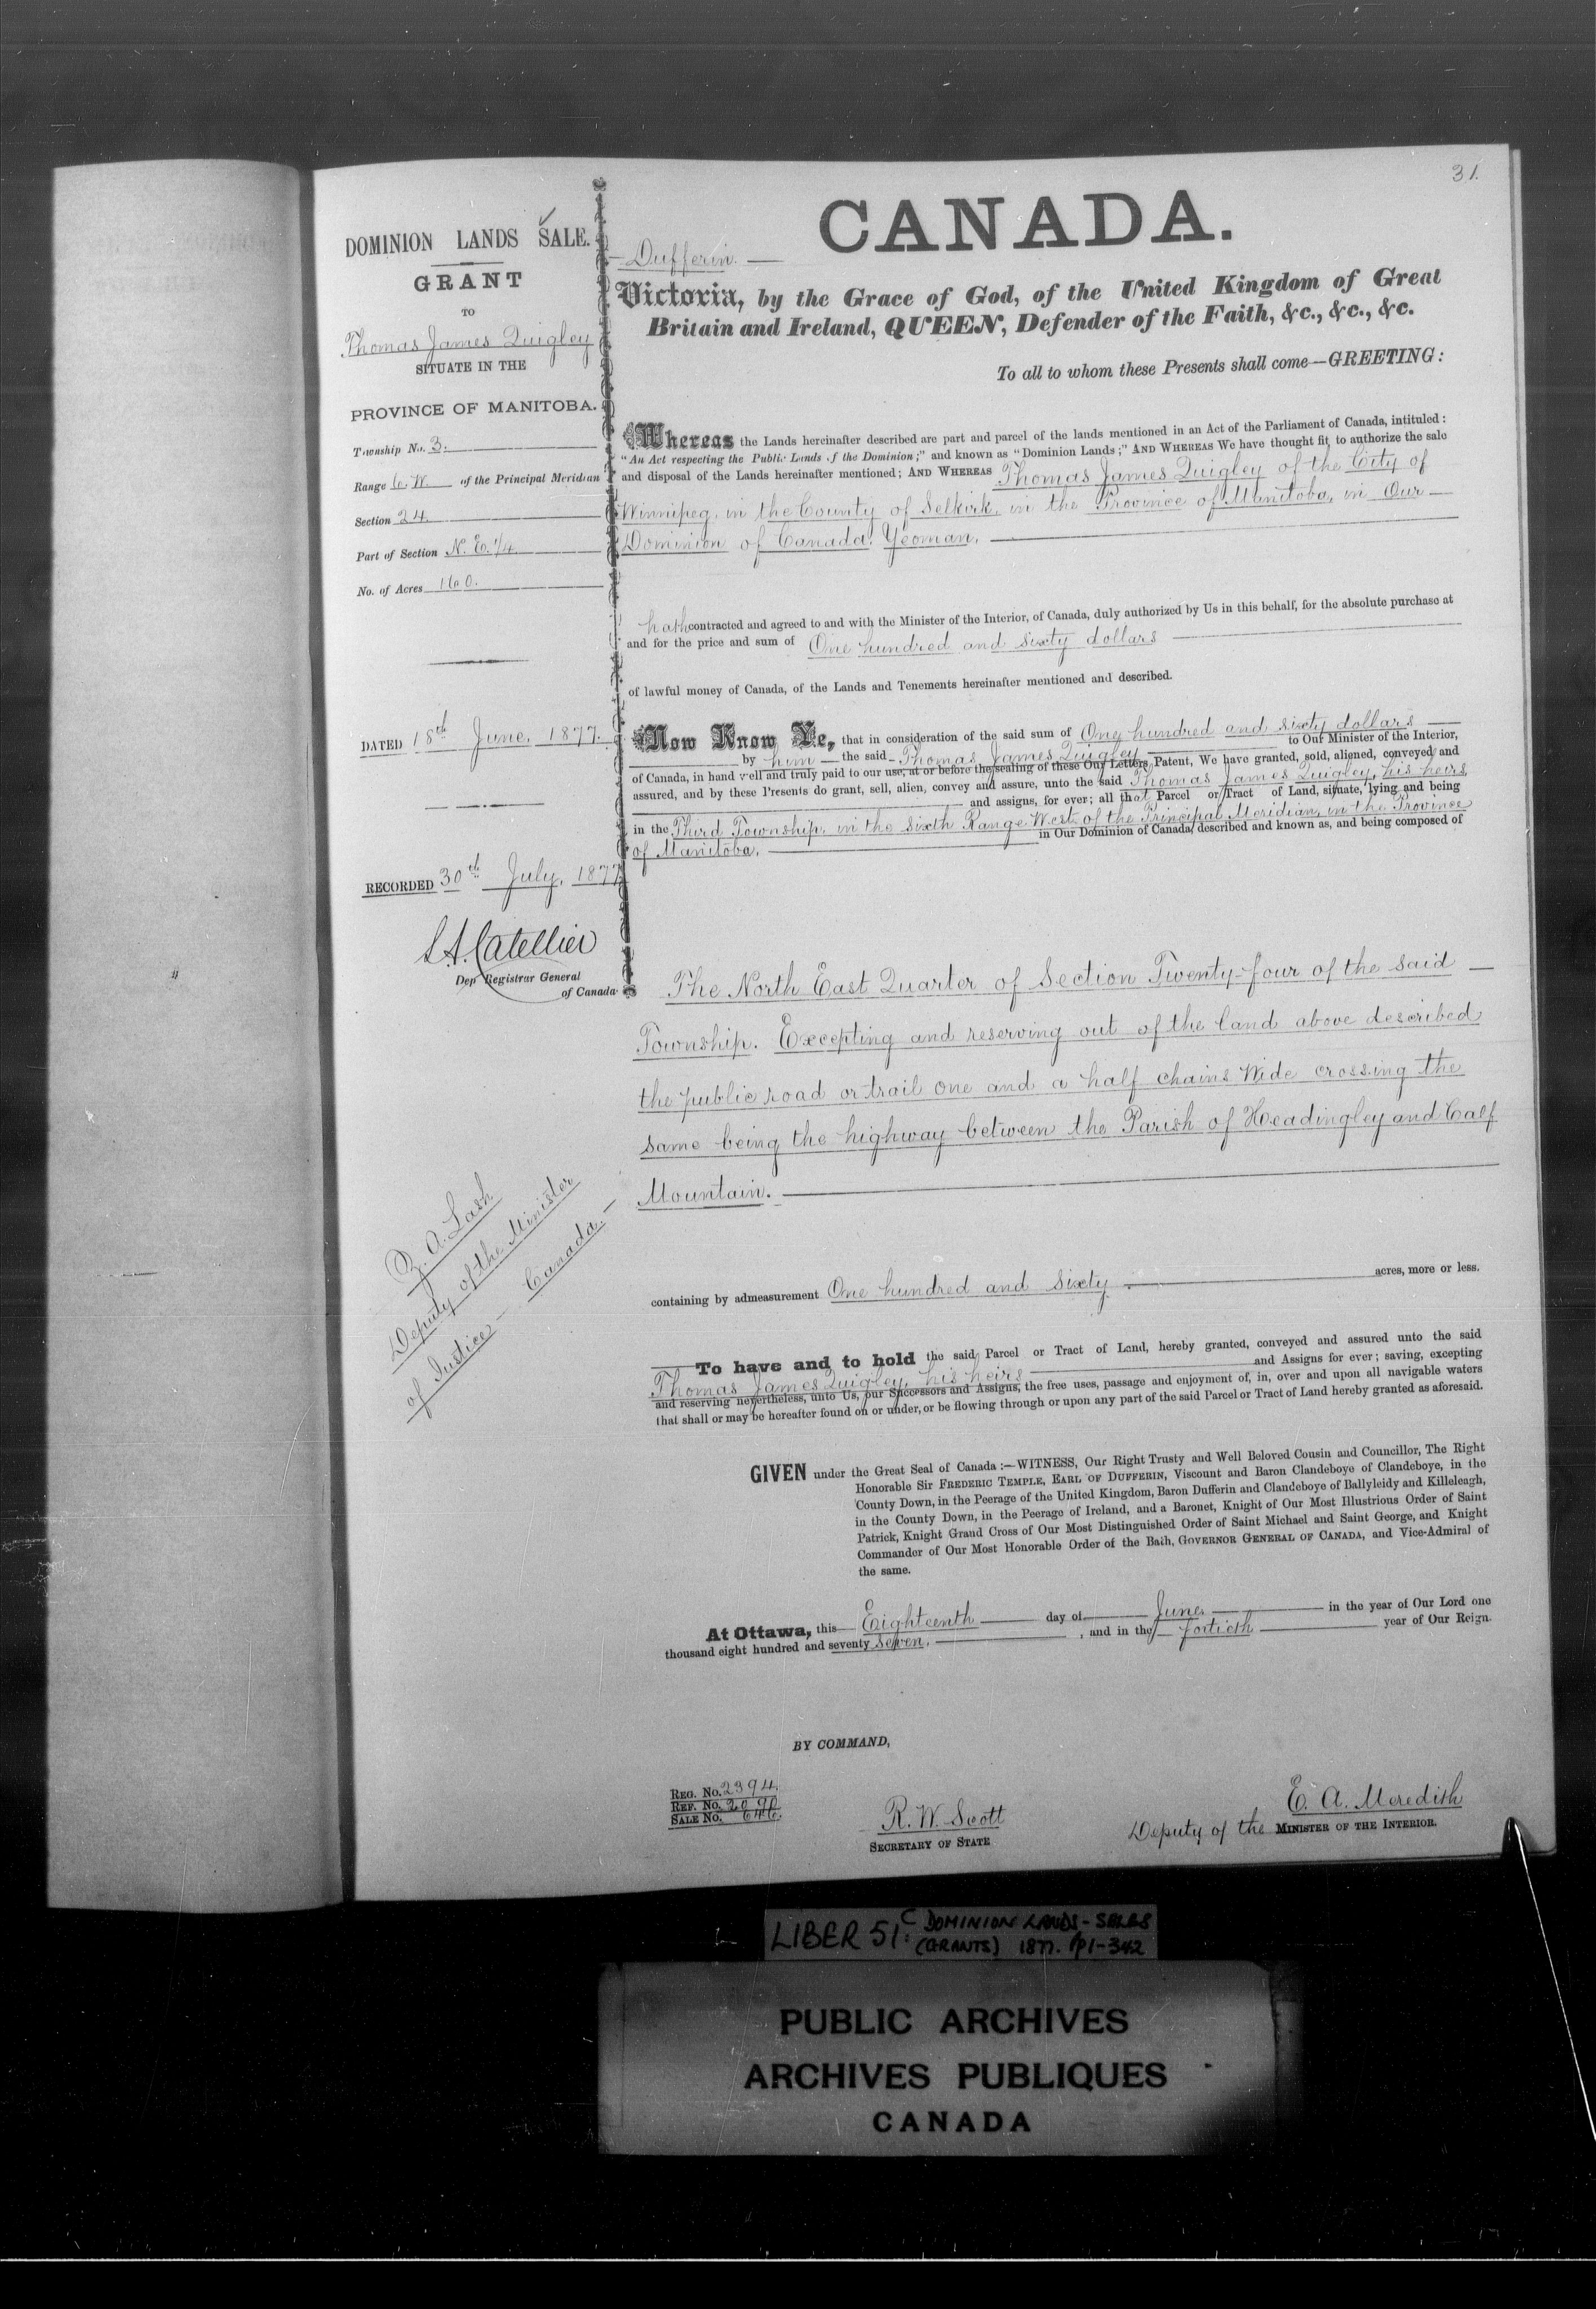 31.
DOMINION LANDS SALE.
GRANT
TO
Thomas James Quigley
SITUATE IN THE
PROVINCE OF MANITOBA.
Township No. 3.
Range 6. W of the Principal Meridian
Section 24.
Part of Section N. E. 1/4
No. of Acres 160.
DATED 18th June, 1877.
RECORDED 30th July, 1877
L.A. Catellier
Dep Registrar General
of Canada
Z. A. Lash
Deputy of the Minister
of Justice - Canada.
CANADA.
Dufferin.
Victoria, by the Grace of God, of the United Kingdom of Great
Britain and Ireland, QUEEN, Defender of the Faith, &c., &c., &c.
To all to whom these Presents shall come—GREETING:
Whereas the Lands hereinafter described are part and parcel of the lands mentioned in an Act of the Parliament of Canada, intituled:
"An Act respecting the Public Lands of the Dominion;" and known as "Dominion Lands;" AND WHEREAS We have thought fit to authorize the sale
and disposal of the Lands hereinafter mentioned; AND WHEREAS Thomas James Quigley of the City of
Winnipeg, in the County of Selkirk, in the Province of Manitoba, in Our
Dominion of Canada, Yeoman,
hath contracted and agreed to and with the Minister of the Interior, of Canada, duly authorized by Us in this behalf, for the absolute purchase at
and for the price and sum of One hundred and sixty dollars
of lawful money of Canada, of the Lands and Tenements hereinafter mentioned and described.
Now Know Ye, that in consideration of the said sum of One hundred and sixty dollars
by him the said Thomas James Quigley to Our Minister of the Interior,
of Canada, in hand well and truly paid to our use, at or before the sealing of these Our Letters Patent, We have granted, sold, aliened, conveyed and
assured, and by these Presents do grant, sell, alien, convey and assure, unto the said Thomas James Quigley, his heirs
and assigns, for ever; all that Parcel or Tract of Land, situate, lying and being
in the Third Township, in the Sixth Range West of the Principal Meridian, in the Province
of Manitoba, in Our Dominion of Canada, described and known as, and being composed of
The North East Quarter of Section Twenty-four of the said
Township. Excepting and reserving out of the land above described
the public road or trail one and a half chains wide crossing the
same being the highway between the Parish of Headingley and Calf
Mountain.
containing by admeasurement One hundred and sixty acres, more or less.
To have and to hold the said Parcel or Tract of Land, hereby granted, conveyed and assured unto the said
Thomas James Quigley, his heirs and Assigns for ever; saving, excepting
and reserving nevertheless, unto Us, our Successors and Assigns, the free uses, passage and enjoyment of, in, over and upon all navigable waters
that shall or may be hereafter found on or under, or be flowing through or upon any part of the said Parcel or Tract of Land hereby granted as aforesaid.
GIVEN under the Great Seal of Canada:—WITNESS, Our Right Trusty and Well Beloved Cousin and Councillor, The Right
Honorable Sir FREDERIC TEMPLE, EARL OF DUFFERIN, Viscount and Baron Clandeboye of Clandeboye, in the
County Down, in the Peerage of the United Kingdom, Baron Dufferin and Clandeboye of Ballyleidy and Killeleagh,
in the County Down, in the Peerage of Ireland, and a Baronet, Knight of Our Most Illustrious Order of Saint
Patrick, Knight Grand Cross of Our Most Distinguished Order of Saint Michael and Saint George, and Knight
Commander of Our Most Honorable Order of the Bath, GOVERNOR GENERAL OF CANADA, and Vice-Admiral of
the same.
At Ottawa, this Eighteenth day of June in the year of Our Lord one
thousand eight hundred and seventy seven, , and in the fortieth year of Our Reign.
BY COMMAND,
REG. No. 2394.
REF. No. 2090
SALE No. 646.
R. W. Scott
SECRETARY OF STATE
E. A. Meredith
Deputy of the MINISTER OF THE INTERIOR.
LIBER 51C: DOMINION LANDS - SALES
(GRANTS) 1877. pp1-342
PUBLIC ARCHIVES
ARCHIVES PUBLIQUES
CANADA